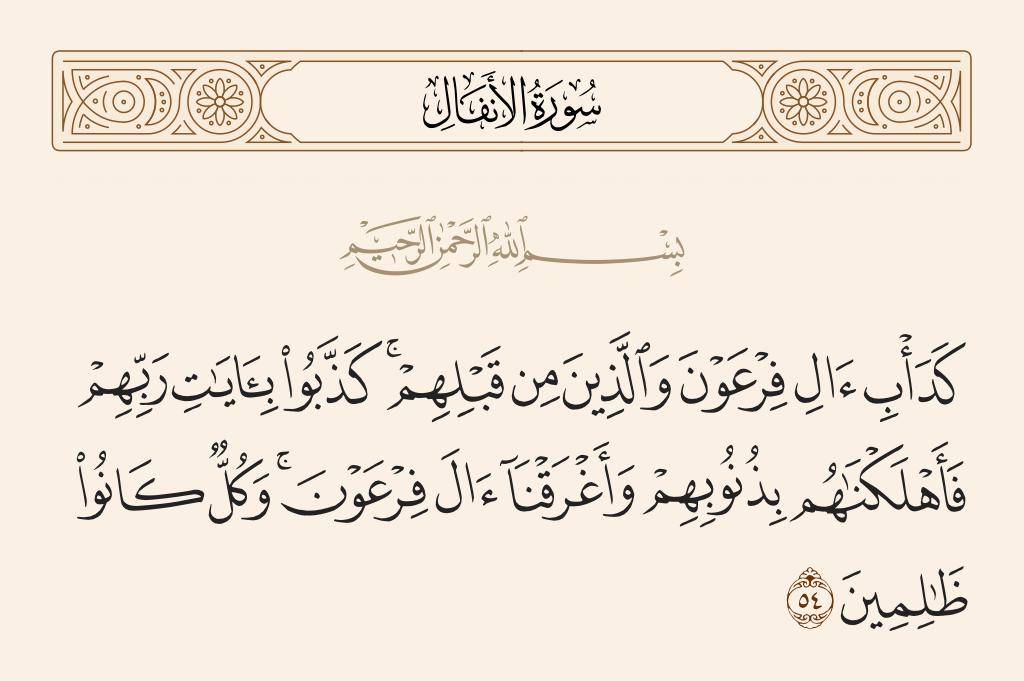 سُورَةُ الأَنفَالِ
بِسْمِ ٱللَّهِ ٱلرَّحْمَٰنِ ٱلرَّحِيمِ
كَدَأْبِ ءَالِ فِرْعَوْنَ وَٱلَّذِينَ مِن قَبْلِهِمْ ۚ كَذَّبُوا۟ بِـَٔايَـٰتِ رَبِّهِمْ
فَأَهْلَكْنَـٰهُم بِذُنُوبِهِمْ وَأَغْرَقْنَآ ءَالَ فِرْعَوْنَ ۚ وَكُلٌّ كَانُوا۟
ظَـٰلِمِينَ ٥٤